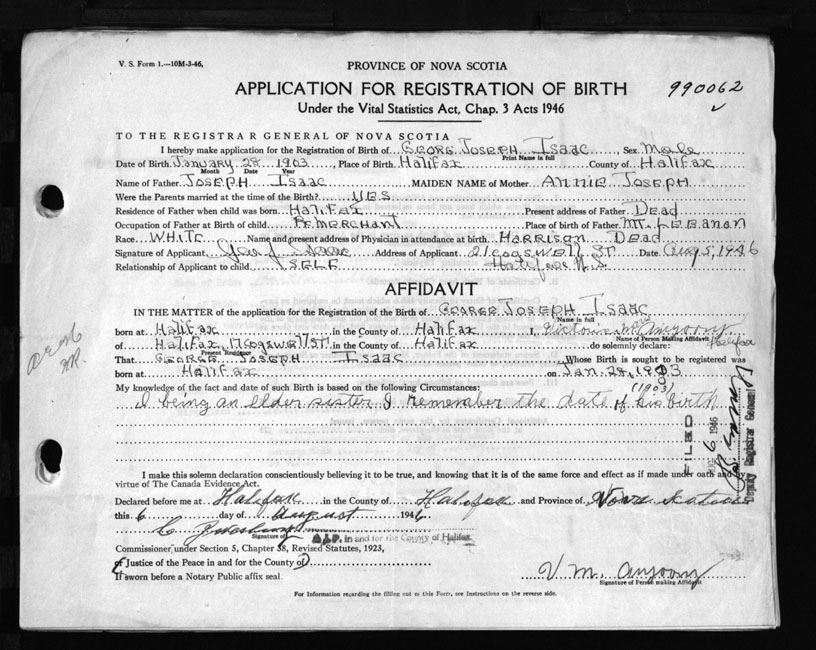 V. S. Form 1.—10M-3-46,
PROVINCE OF NOVA SCOTIA
APPLICATION FOR REGISTRATION OF BIRTH 990062
Under the Vital Statistics Act, Chap. 3 Acts 1946
TO THE REGISTRAR GENERAL OF NOVA SCOTIA
I hereby make application for the Registration of Birth of GEORG JOSEPH ISAAC, Sex Male
Print Name in full
Date of Birth January 28 1903, Place of Birth Halifax County of Halifax
Month Date Year
Name of Father JOSEPH ISAAC MAIDEN NAME of Mother ANNIE JOSEPH
Were the Parents married at the time of the Birth? YES
Residence of Father when child was born HALIFAX Present address of Father Dead
Occupation of Father at Birth of child MERCHANT Place of birth of Father MT. LEBANAN
Race WHITE Name and present address of Physician in attendance at birth HARRISON Dead
Signature of Applicant Geo. J. Isaac Address of Applicant 21 Cogswell ST. Date Aug 5, 1946
Relationship of Applicant to child SELF Halifax N.S.
AFFIDAVIT
IN THE MATTER of the application for the Registration of Birth of GEORGE JOSEPH ISAAC
Name in full
born at Halifax in the County of Halifax I,
Name of Person Making Affidavit
of Halifax, Cogswell ST. in the County of Halifax do solemnly declare: Halifax
Present Residence
That GEORGE JOSEPH ISAAC Whose Birth is sought to be registered was
born at Halifax on Jan. 28, 1903
(1903)
My knowledge of the fact and date of such Birth is based on the following Circumstances:
I being an elder sister I remember the date of his birth
FILED
6 1946
Deputy Registrar General
I make this solemn declaration conscientiously believing it to be true, and knowing that it is of the same force and effect as if made under oath and
virtue of The Canada Evidence Act.
Declared before me at Halifax in the County of Halifax and Province of Nova Scotia
this 6 day of August 1946
Signature of J.P. in and for the County of Halifax
Commissioner, under Section 5, Chapter 38, Revised Statutes, 1923,
(of Justice of the Peace in and for the County of)
If sworn before a Notary Public affix seal
V. M. Anjoony
Signature of Person making Affidavit
For Information regarding the filling out to this Form, see Instructions on the reverse side.